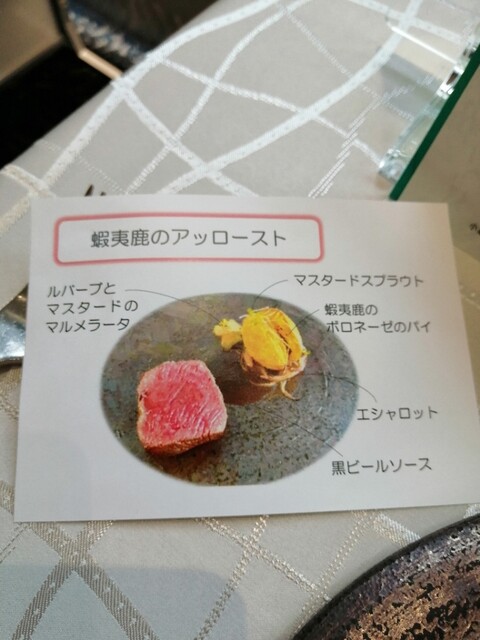 蝦夷鹿のアッロースト
ルバーブと
マスタードの
マルメラータ
マスタードスプラウト
蝦夷鹿の
ボロネーゼのパイ
エシャロット
黒ビールソース